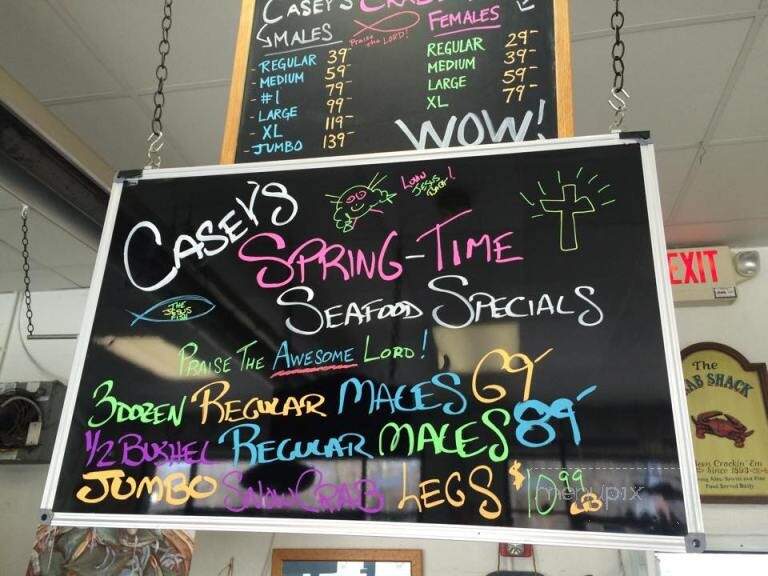 CASEY'S
MALES
FEMALES
Praise the LORD!
- REGULAR 39-
- MEDIUM 59-
- #1 79-
- LARGE 99-
- XL 119-
- JUMBO 139-
REGULAR 29-
MEDIUM 39-
LARGE 59-
XL 79-
WOW!
CASEY'S
SPRING-TIME
SEAFOOD SPECIALS
THE JESUS FISH
PRAISE THE AWESOME LORD!
3 DOZEN REGULAR MALES 69-
1/2 BUSHEL REGULAR MALES 89-
JUMBO SNOW CRAB LEGS $10.99 LB
EXIT
The
AB SHACK
Crackin' Em
Since 1893
menupix